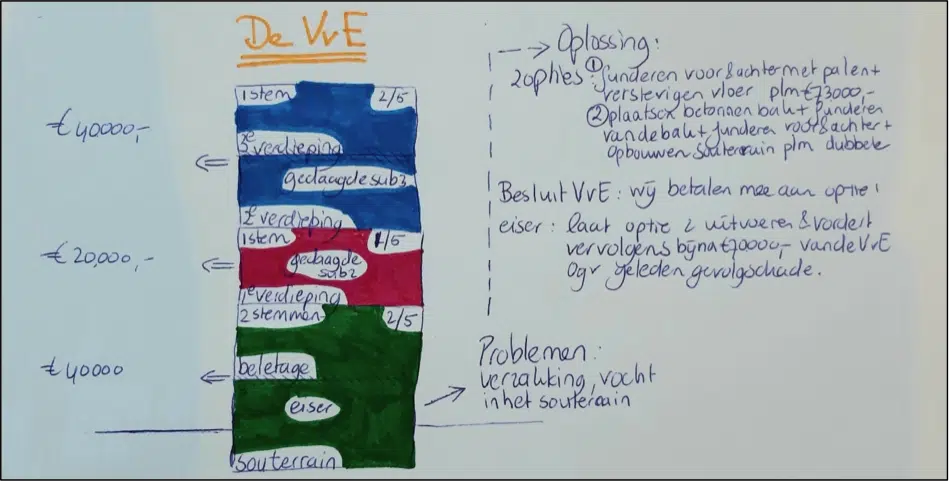 De VvE
€ 40000,-
1 stem
2/5
3e verdieping
gedaagde sub 3
2e verdieping
€ 20,000,-
1 stem
1/5
gedaagde
sub 2
1e verdieping
€ 40000
2 stemmen
2/5
beletage
eiser
souterrain
→ Oplossing:
2 opties: ① funderen voor & achter met palen +
verstevigen vloer plm €73000,-
② plaatsen betonnen bak + funderen
van de bak + funderen voor & achter +
opbouwen souterrain plm dubbele
Besluit VvE: wij betalen mee aan optie 1
eiser: laat optie 2 uitvoeren & vordert
vervolgens bijna €70000,- van de VvE
ogv geleden gevolgschade.
Problemen:
verzakking, vocht
in het souterrain